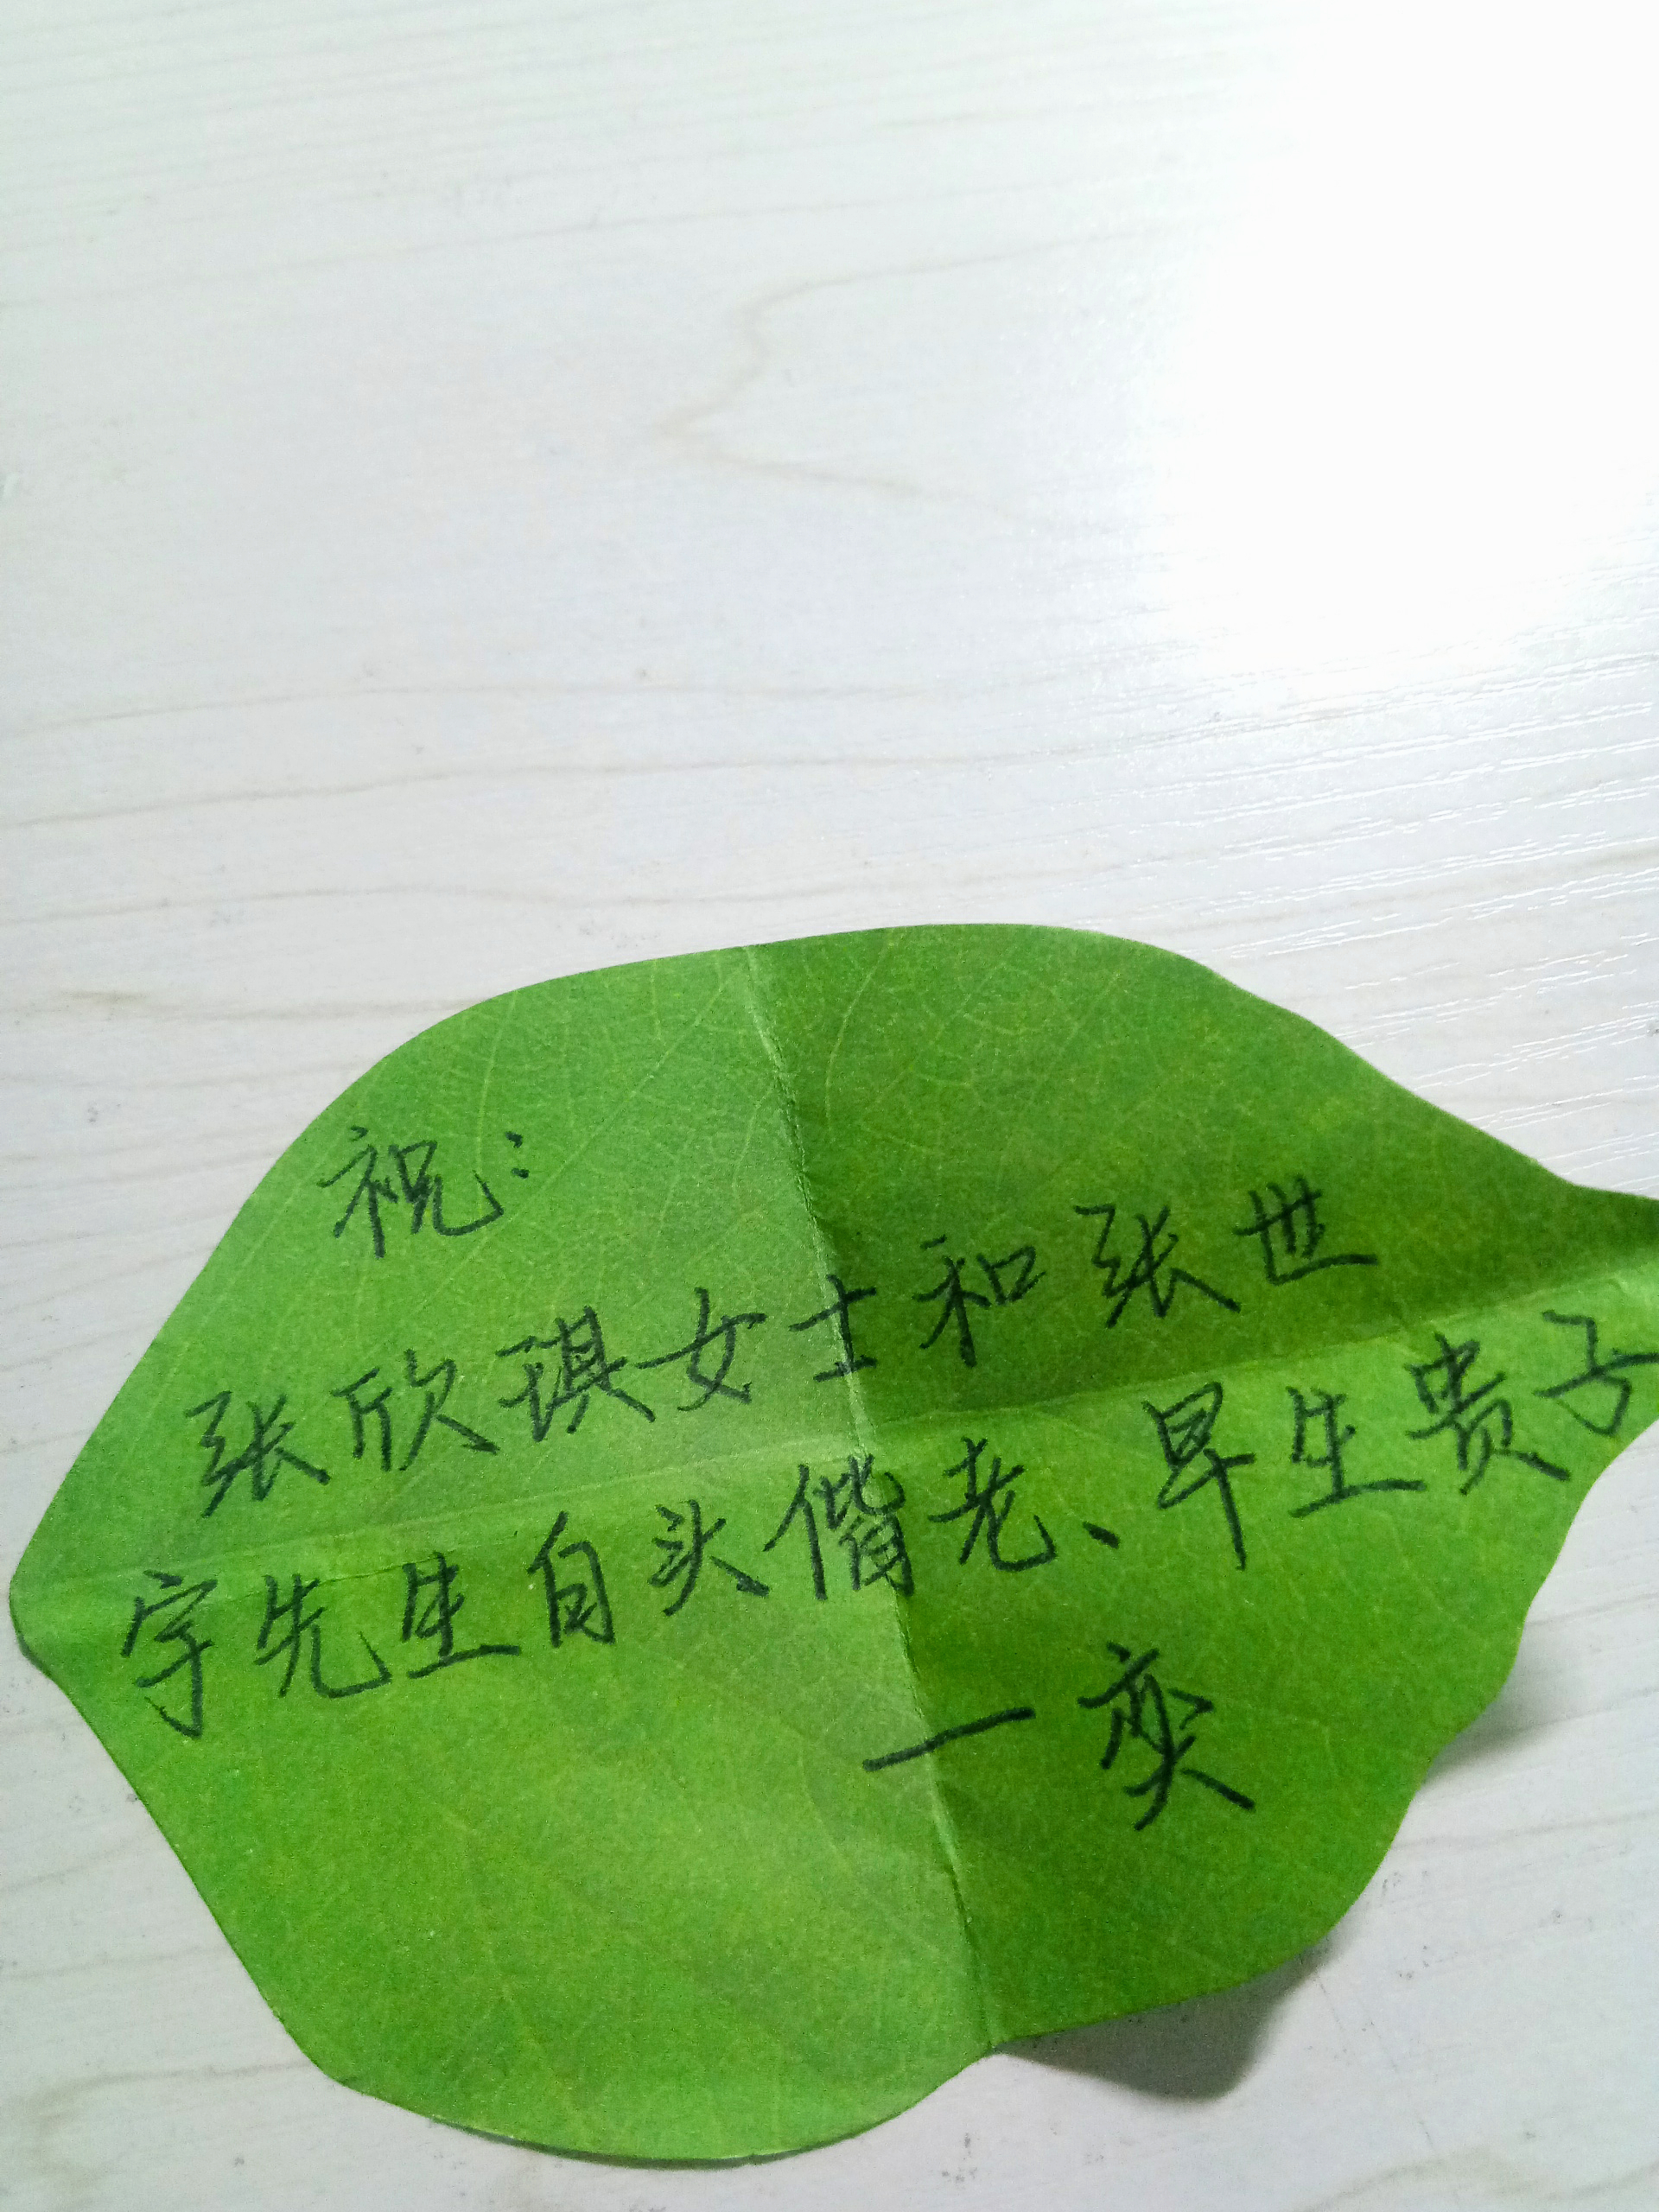 祝：
张欣琪女士和张世
宇先生白头偕老、早生贵子
一奕